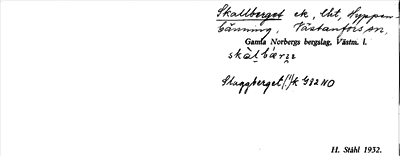 Skallberget ek, lht, Hyppen-
bänning, Västanfors sn,
Gamla Norbergs bergslag, Västm. l.
skàlbǽrɛ
Skaggberget (!) k G32 NO
H. Ståhl 1932.